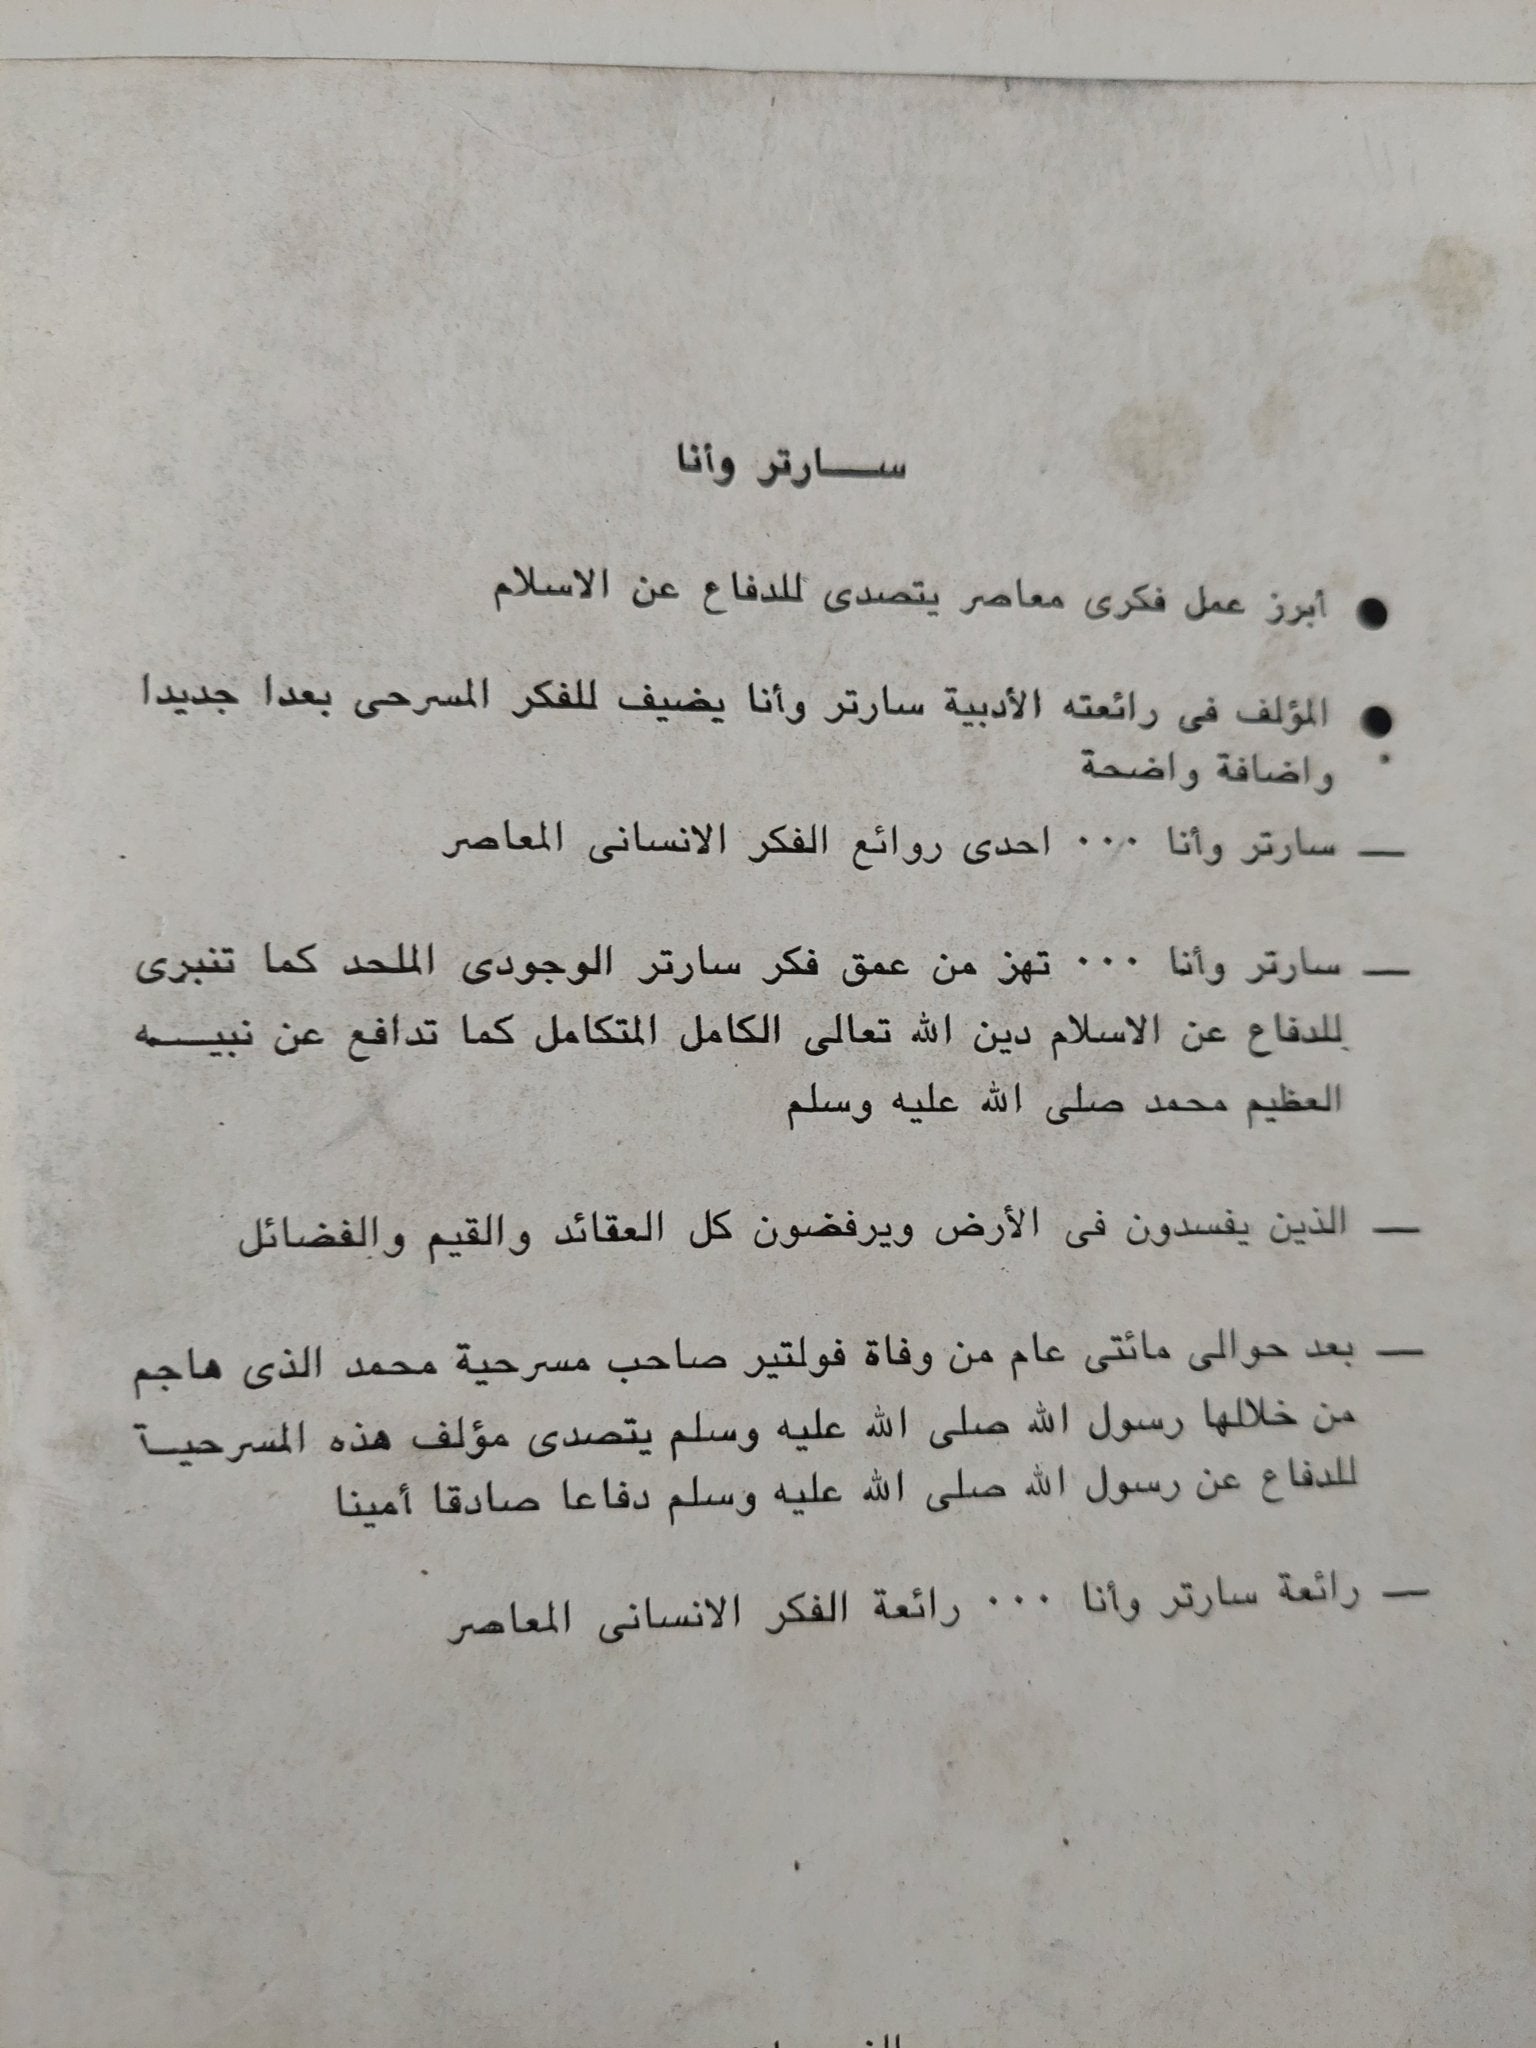 ســـارتر وأنا
● أبرز عمل فكرى معاصر يتصدى للدفاع عن الاسلام
● المؤلف فى رائعته الأدبية سارتر وأنا يضيف للفكر المسرحى بعدا جديدا
واضافة واضحة
— سارتر وأنا ٠٠٠ احدى روائع الفكر الانسانى المعاصر
— سارتر وأنا ٠٠٠ تهز من عمق فكر سارتر الوجودى الملحد كما تنبرى
للدفاع عن الاسلام دين الله تعالى الكامل المتكامل كما تدافع عن نبيـــه
العظيم محمد صلى الله عليه وسلم
— الذين يفسدون فى الأرض ويرفضون كل العقائد والقيم والفضائل
— بعد حوالى مائتى عام من وفاة فولتير صاحب مسرحية محمد الذى هاجم
من خلالها رسول الله صلى الله عليه وسلم يتصدى مؤلف هذه المسرحيـة
للدفاع عن رسول الله صلى الله عليه وسلم دفاعا صادقا أمينا
— رائعة سارتر وأنا ٠٠٠ رائعة الفكر الانسانى المعاصر